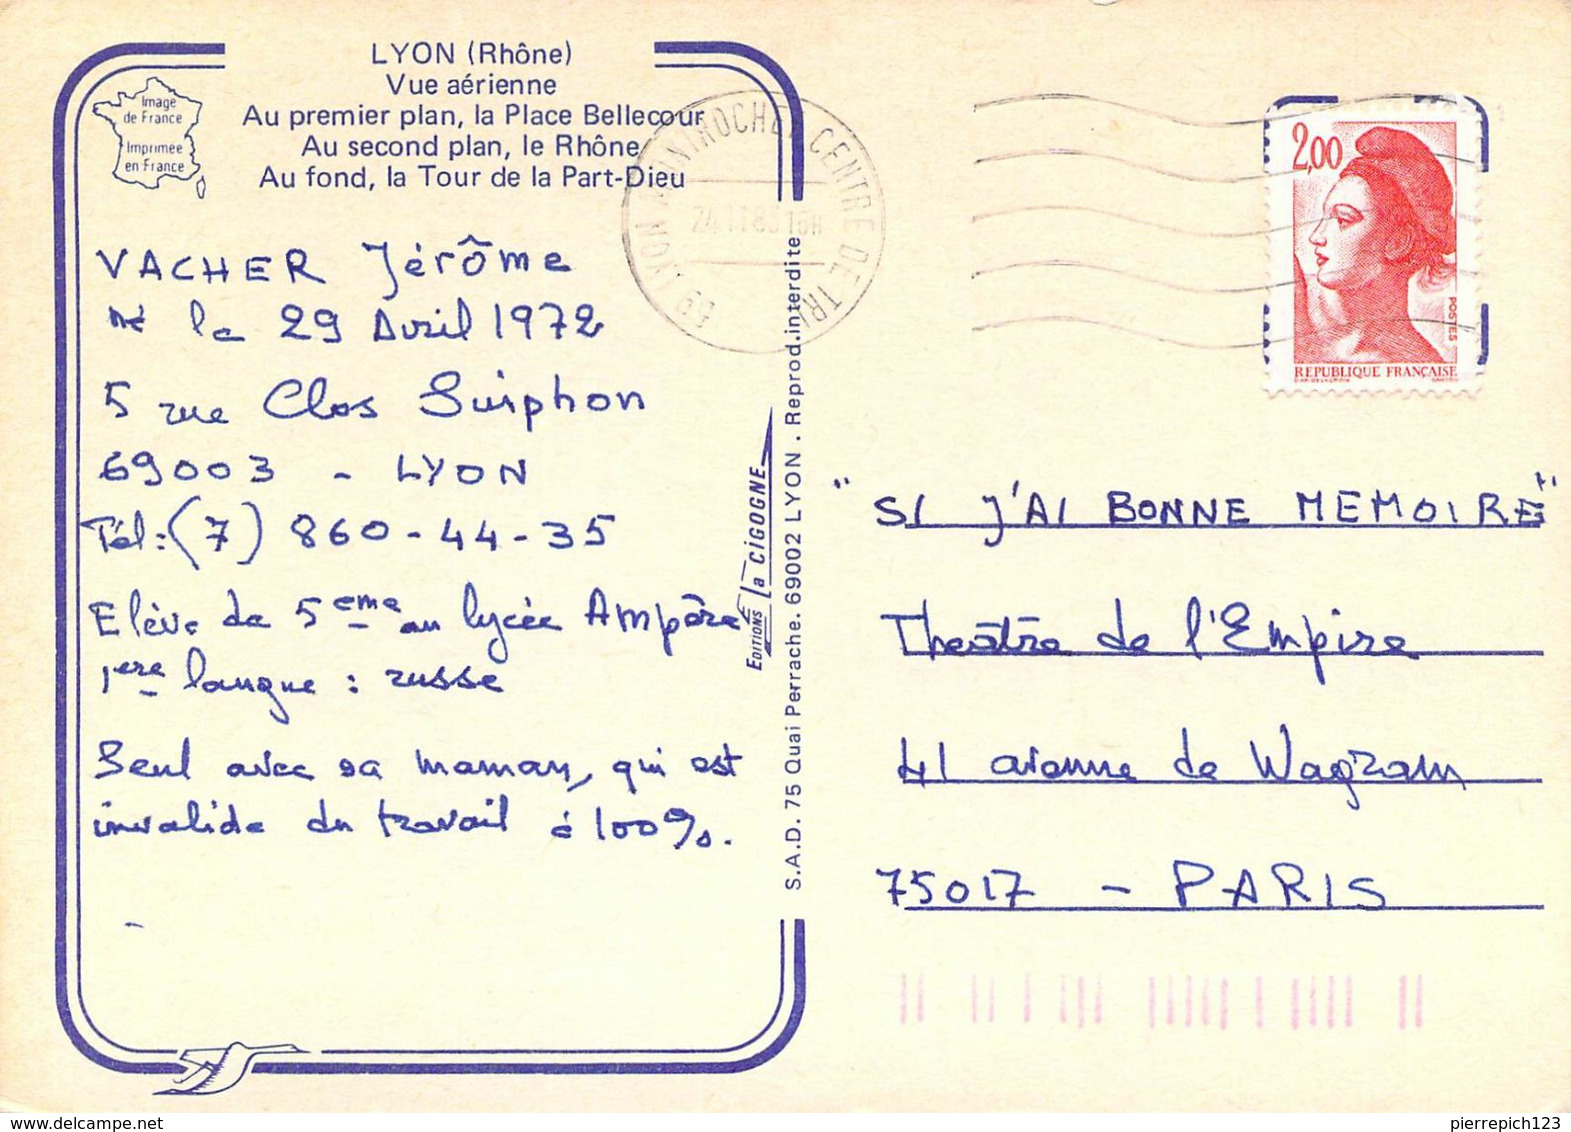 LYON (Rhône)
Vue aérienne
Au premier plan, la Place Bellecour
Au second plan, le Rhône
Au fond, la Tour de la Part-Dieu
Image
de France
Imprimée
en France
VACHER Jérôme
né le 29 Avril 1972
5 rue Clos Suiphon
69003 - LYON
Tél : (7) 860-44-35
Elève de 5eme au lycée Ampère
1ere langue : russe
Seul avec sa maman, qui est
invalide du travail à 100%.
EDITIONS La CIGOGNE
S.A.D. 75 Quai Perrache. 69002 LYON . Reprod.interdite
69 LYON MONTROCHET CENTRE DE TRI
16H
2,00
POSTES
REPUBLIQUE FRANÇAISE
"SI J'AI BONNE MEMOIRE"
Theâtre de l'Empire
41 avenue de Wagram
75017 - PARIS
pierrepich123